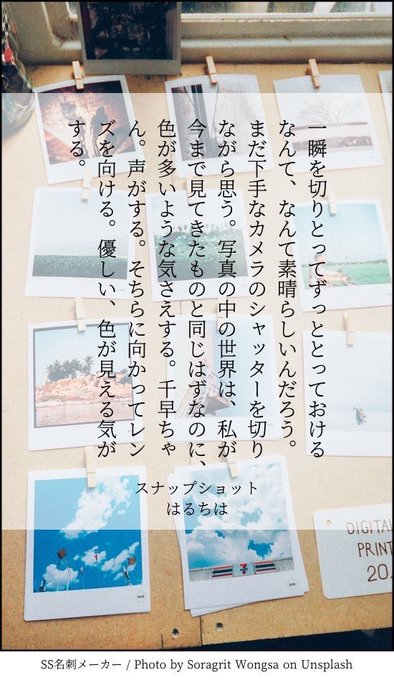 一瞬を切りとってずっととっておける
なんて、なんて素晴らしいんだろう。
まだ下手なカメラのシャッターを切り
ながら思う。写真の中の世界は、私が
今まで見てきたものと同じはずなのに、
色が多いような気さえする。千早ちゃ
ん。声がする。そちらに向かってレン
ズを向ける。優しい、色が見える気が
する。
スナップショット
はるちは
7
DIGITA
PRIN
20.
SS名刺メーカー / Photo by Soragrit Wongsa on Unsplash